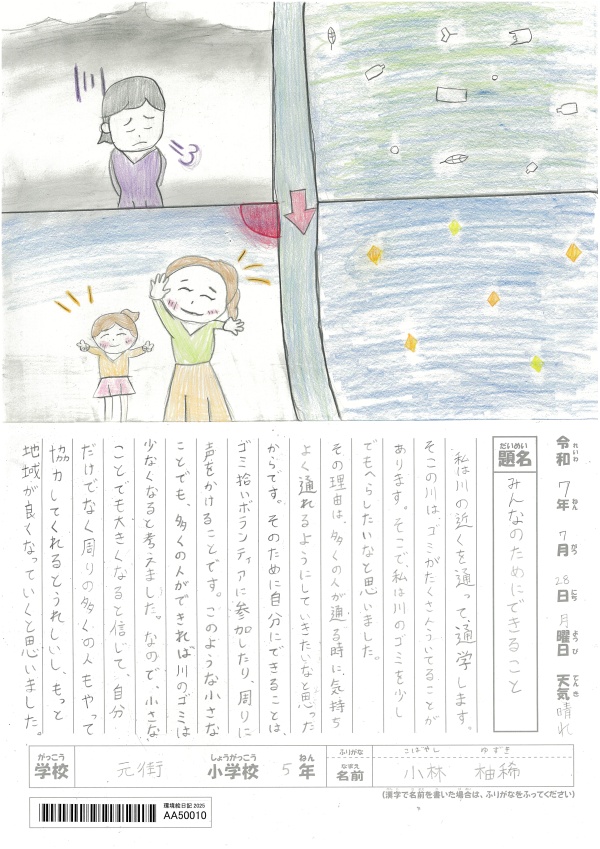 令和 7年 7月 28日 月曜日 天気 晴れ
れいわ ねん がつ にち ようび てんき
だいめい
題名 みんなのためにできること
私は川の近くを通って、通学します。
そこの川は、ゴミがたくさんういてることが
あります。そこで、私は川のゴミを少し
でもへらしたいなと思いました。
その理由は、多くの人が通る時に、気持ち
よく通れるようにしていきたいなと思った
からです。そのために自分にできることは、
ゴミ拾いボランティアに参加したり、周りに
声をかけることです。このような小さな
ことでも、多くの人ができれば川のゴミは
少なくなると考えました。なので、小さな
ことでも大きくなると信じて、自分
だけでなく周りの多くの人もやって
協力してくれるとうれしいし、もっと
地域が良くなっていくと思いました。
がっこう しょうがっこう ねん ふりがな こばやし ゆずき
学校 元街 小学校 5年 なまえ 名前 小林 柚稀
(漢字で名前を書いた場合は、ふりがなをふってください)
環境絵日記 2025
AA50010